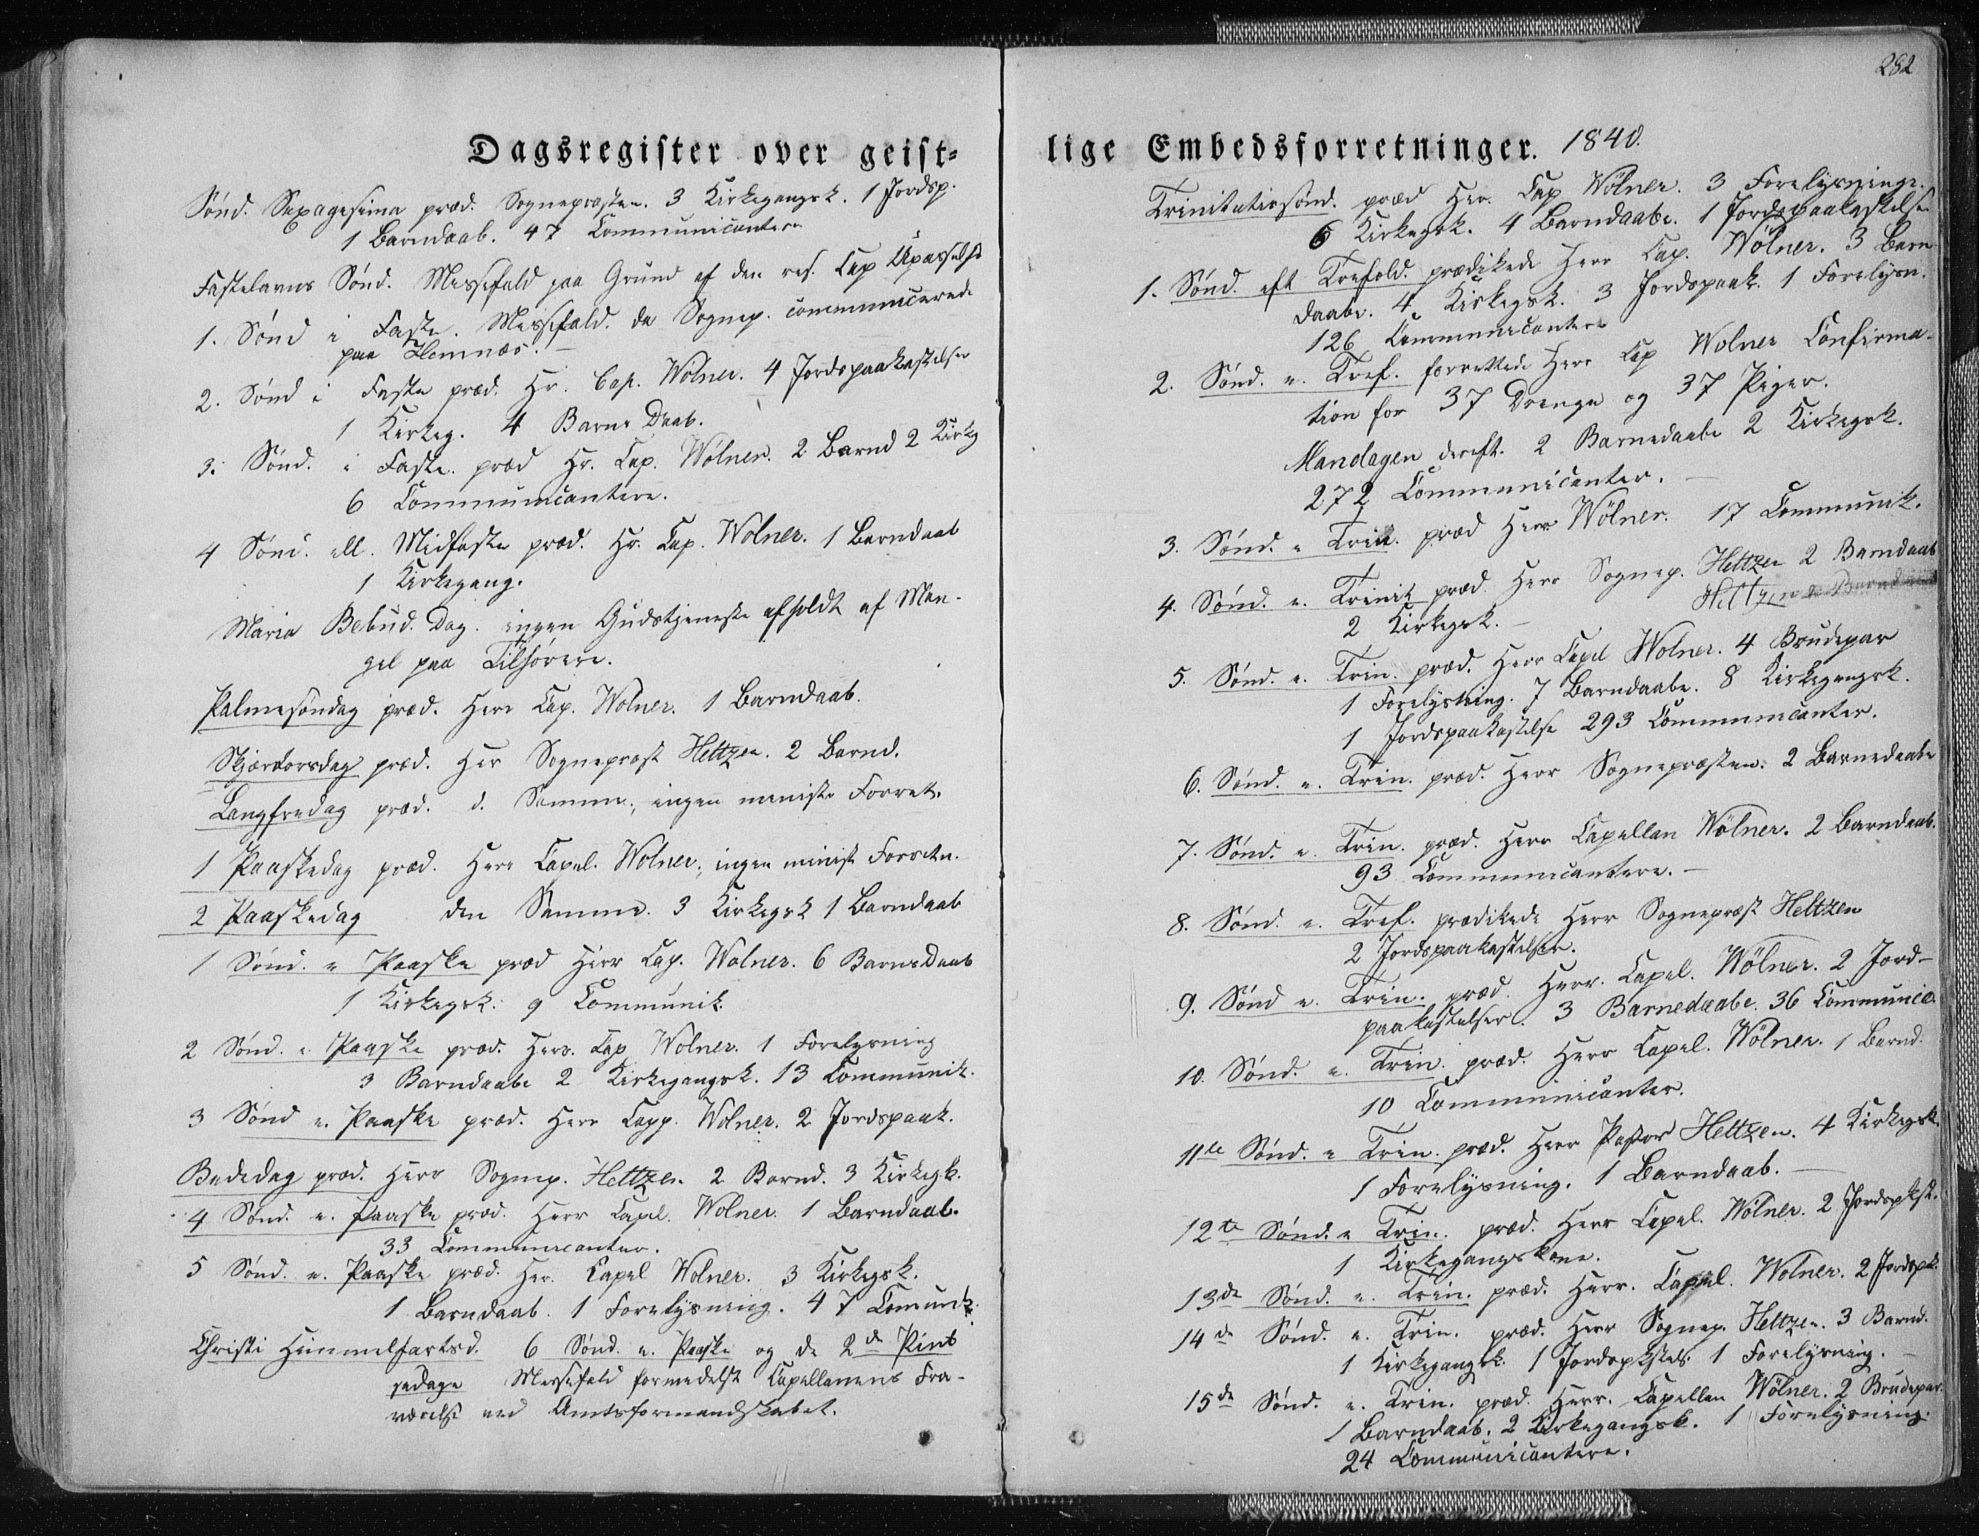 Dagsregister over geist-
Sønd. Sexagesima præd. Sognepræsten. 3 Kirkegangsk. 1 Jordsp.
1 Barndaab. 47 Communicantere
Fastelavns Sønd. Messefald paa Grund af den res. Cap Upasselighd
1. Sønd i Faste. Messefald. da Sognep. communicerede
paa Hemnæs. —
2. Sønd i Faste præd. Hr. Cap. Wølner. 4 Jordspaakastelser
1 Kirkeg. 4 Barne Daab.
3. Sønd. i Faste. præd Hr. Cap. Wølner. 2 Barnd 2 Kirkg
6 Communicantere.
4 Sønd. ell. Midfaste præd. Hr. Cap. Wølner. 1 Barndaab
1 Kirkegang.
Maria Bebud. Dag. ingen Gudstjeneste afholdt af Man-
gel paa Tilhørere.
Palmesøndag præd. Herr Cap. Wølner. 1 Barndaab.
Skjærtorsdag præd. Her Sognepræst Heltzen. 2 Barnd.
Langfredag præd. d. Samme, ingen ministr Forret.
1 Paaskedag præd. Herr Capel. Wølner, ingen minist Forretn.
2 Paaskedag den Samme. 3 Kirkegsk 1 Barndaab
1 Sønd. e Paaske præd Herr Cap. Wølner. 6 BarneDaab
1 Kirkegsk. 9 Communik.
2 Sønd. e. Paaske præd. Herr. Cap Wølner. 1 Forelysning
3 Barndaabe 2 Kirkegangsk. 13 Communik.
3 Sønd e. Paaske præd. Herr Capp. Wølner. 2 Jordspaak.
Bededag præd. Herr Sognep. Heltzen. 2 Barnd. 3 Kirkegk.
4 Sønd. e. Paaske præd. Herr Capel. Wølner. 1 Barndaab.
33 Communicanter.
5 Sønd. e. Paaske præd. Her. Capel Wølner. 3 Kirkegsk.
1 Barndaab. 1 Forelysning. 47 Comunik.
Christi Himmelfartsd. 6 Sønd. e. Paaske og de 2de Pint
sedage Messefald formedelst Capellanens Fra-
værelse ved Amtsformandskabet.
282
lige Embedsforretninger. 1840.
Trinitatissønd. præd Her. Cap Wølner. 3 Forelysninge.
6 Kirkegsk. 4 Barndaabe. 1 Jordspaakastelse
1. Sønd. eft Trefold. prædikede Herr Cap. Wølner. 3 Barn
daabe. 4 Kirkegsk. 3 Jordspaak. 1 Forelysn.
126 Communicantere
2. Sønd. e. Tref. forrettede Herr Cap Wølner Confirma-
tion for 37 Drenge og 37 Piger.
Mandagen dereft. 2 Barnedaabe 2 Kirkegsk.
272 Communicanter. —
3. Sønd. e Trin. præd Herr Wølner. 17 Communik.
4. Sønd. e. Trinit præd. Herr Sognep. Heltzen 2 Barndaab
2 Kirkegsk. —
5. Sønd. e. Trin. præd. Herr Capel Wølner. 4 Brudepar
1 Forelysning. 7 Barndaabe. 8 Kirkegangsk.
1 Jordspaakastelse 293 Communicanter.
6. Sønd. e. Trin. præd. Herr Sognepræsten. 2 Barnedaabe
7. Sønd. e. Trin. præd. Herr Capellan Wølner. 2 Barndaab.
93 Communicantere. —
8. Sønd. e. Tref. prædikede Herr Sognepræst Heltzen
2 Jordspaakastelser.
9. Sønd e. Trin. præd. Herr. Capel. Wølner. 2 Jord-
paakastelser. 3 Barnedaabe. 36 Communic.
10. Sønd. e. Trin. præd. Herr Capel. Wølner. 1 Barnd.
10 Communicanter.
11te Sønd. e Trin. præd. Herr Pastor Heltzen. 4 Kirkegsk
1 Forelysning. 1 Barndaab. —
12te Sønd. e Trin. præd. Herr Capel. Wølner. 2 Jordspkst.
1 Kirkegangskone.
13de Sønd. e. Trin. præd. Herr. Capel. Wølner. 2 Jordspk.
14de Sønd. e. Trin. præd. Herr Sognep. Heltzen. 3 Barnd.
1 Kirkegangsk. 1 Jordspkstels. 1 Forelysning. —
15de Sønd. e. Trin. præd. Herr. Capellan Wølner. 2 Brudepar.
1 Barndaab. 2 Kirkegangsk. 1 Forelysning.
24 Communicantere.